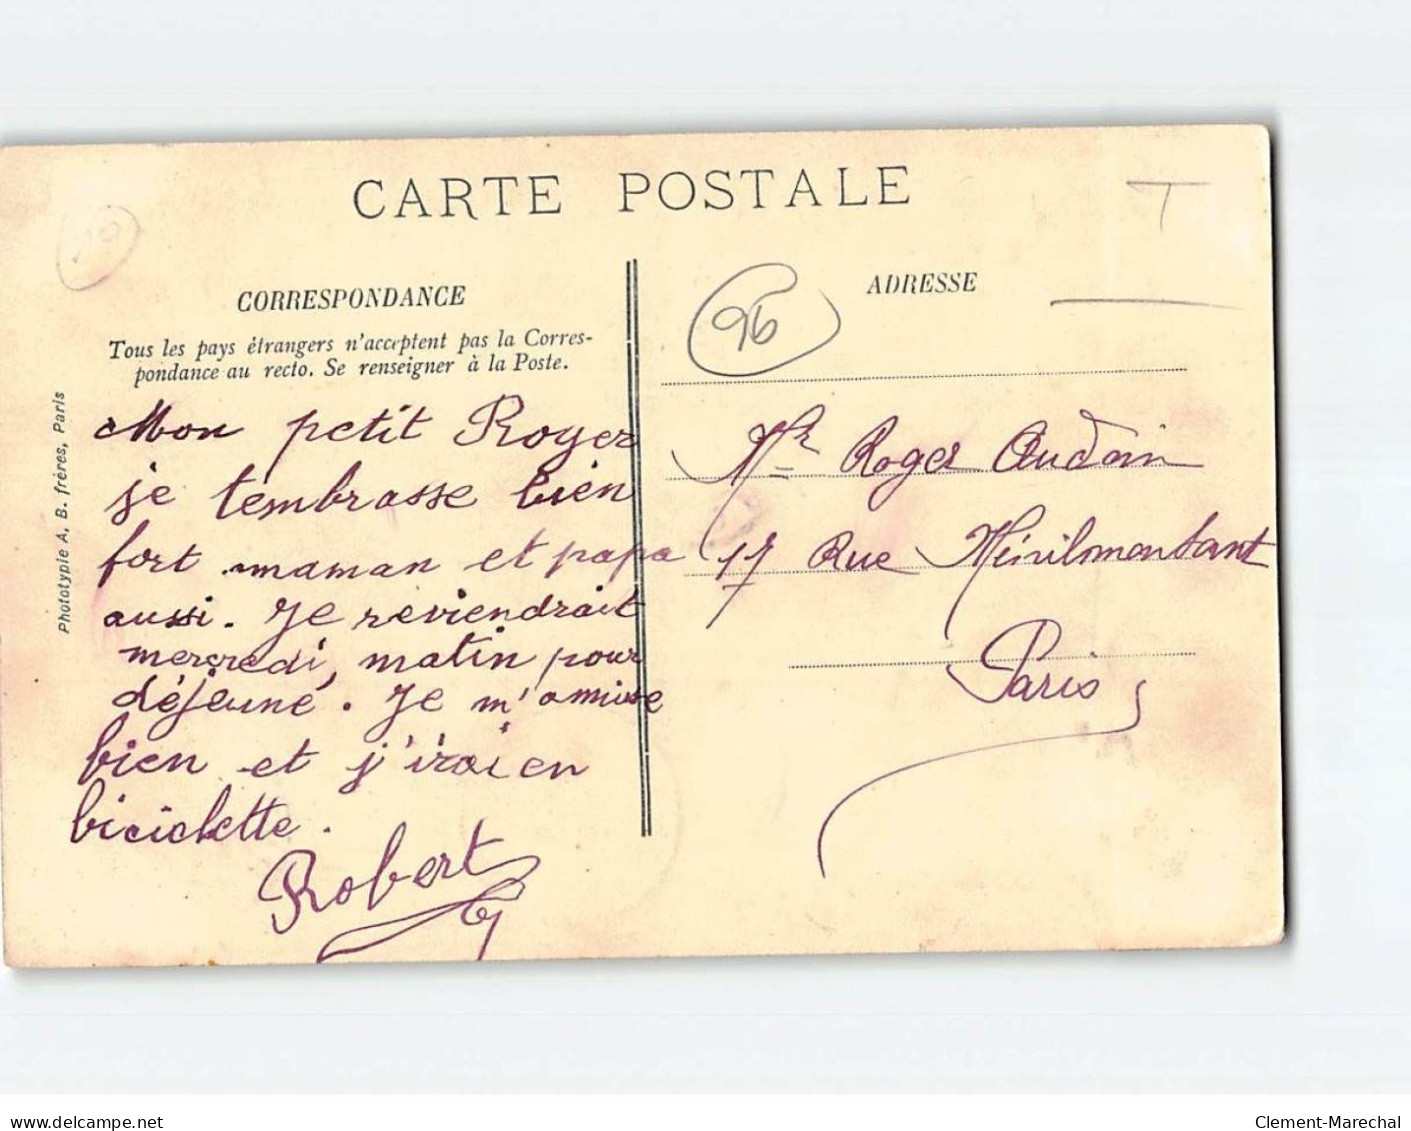 CARTE POSTALE
CORRESPONDANCE
Tous les pays étrangers n'acceptent pas la Corres-
pondance au recto. Se renseigner à la Poste.
Mon petit Roger
je tembrasse bien
fort maman et papa
aussi. Je reviendrait
mercredi, matin pour
déjeuné. Je m'amuse
bien et j'irai en
biciclette.
Robert
Phototypie A. B. frères, Paris
ADRESSE
96
T
Mr Roger
Rue Ménilmontant
Paris
www.delcampe.net
Clement-Marechal